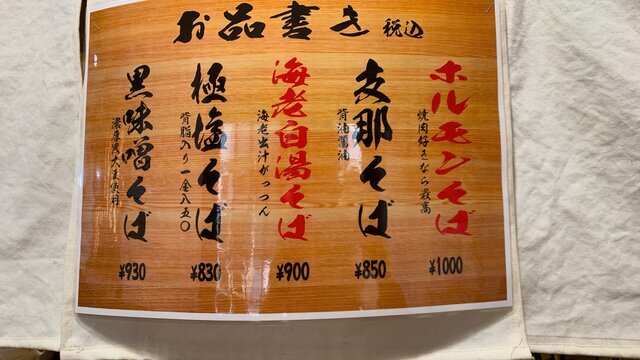 お品書き 税込
ホルモンそば
焼肉好きなら最高
¥1000
支那そば
背油醤油
¥850
海老白湯そば
海老出汁がっつん
¥900
極塩そば
背脂入り一金八五〇
¥830
黒味噌そば
濃厚黒大豆使用
¥930